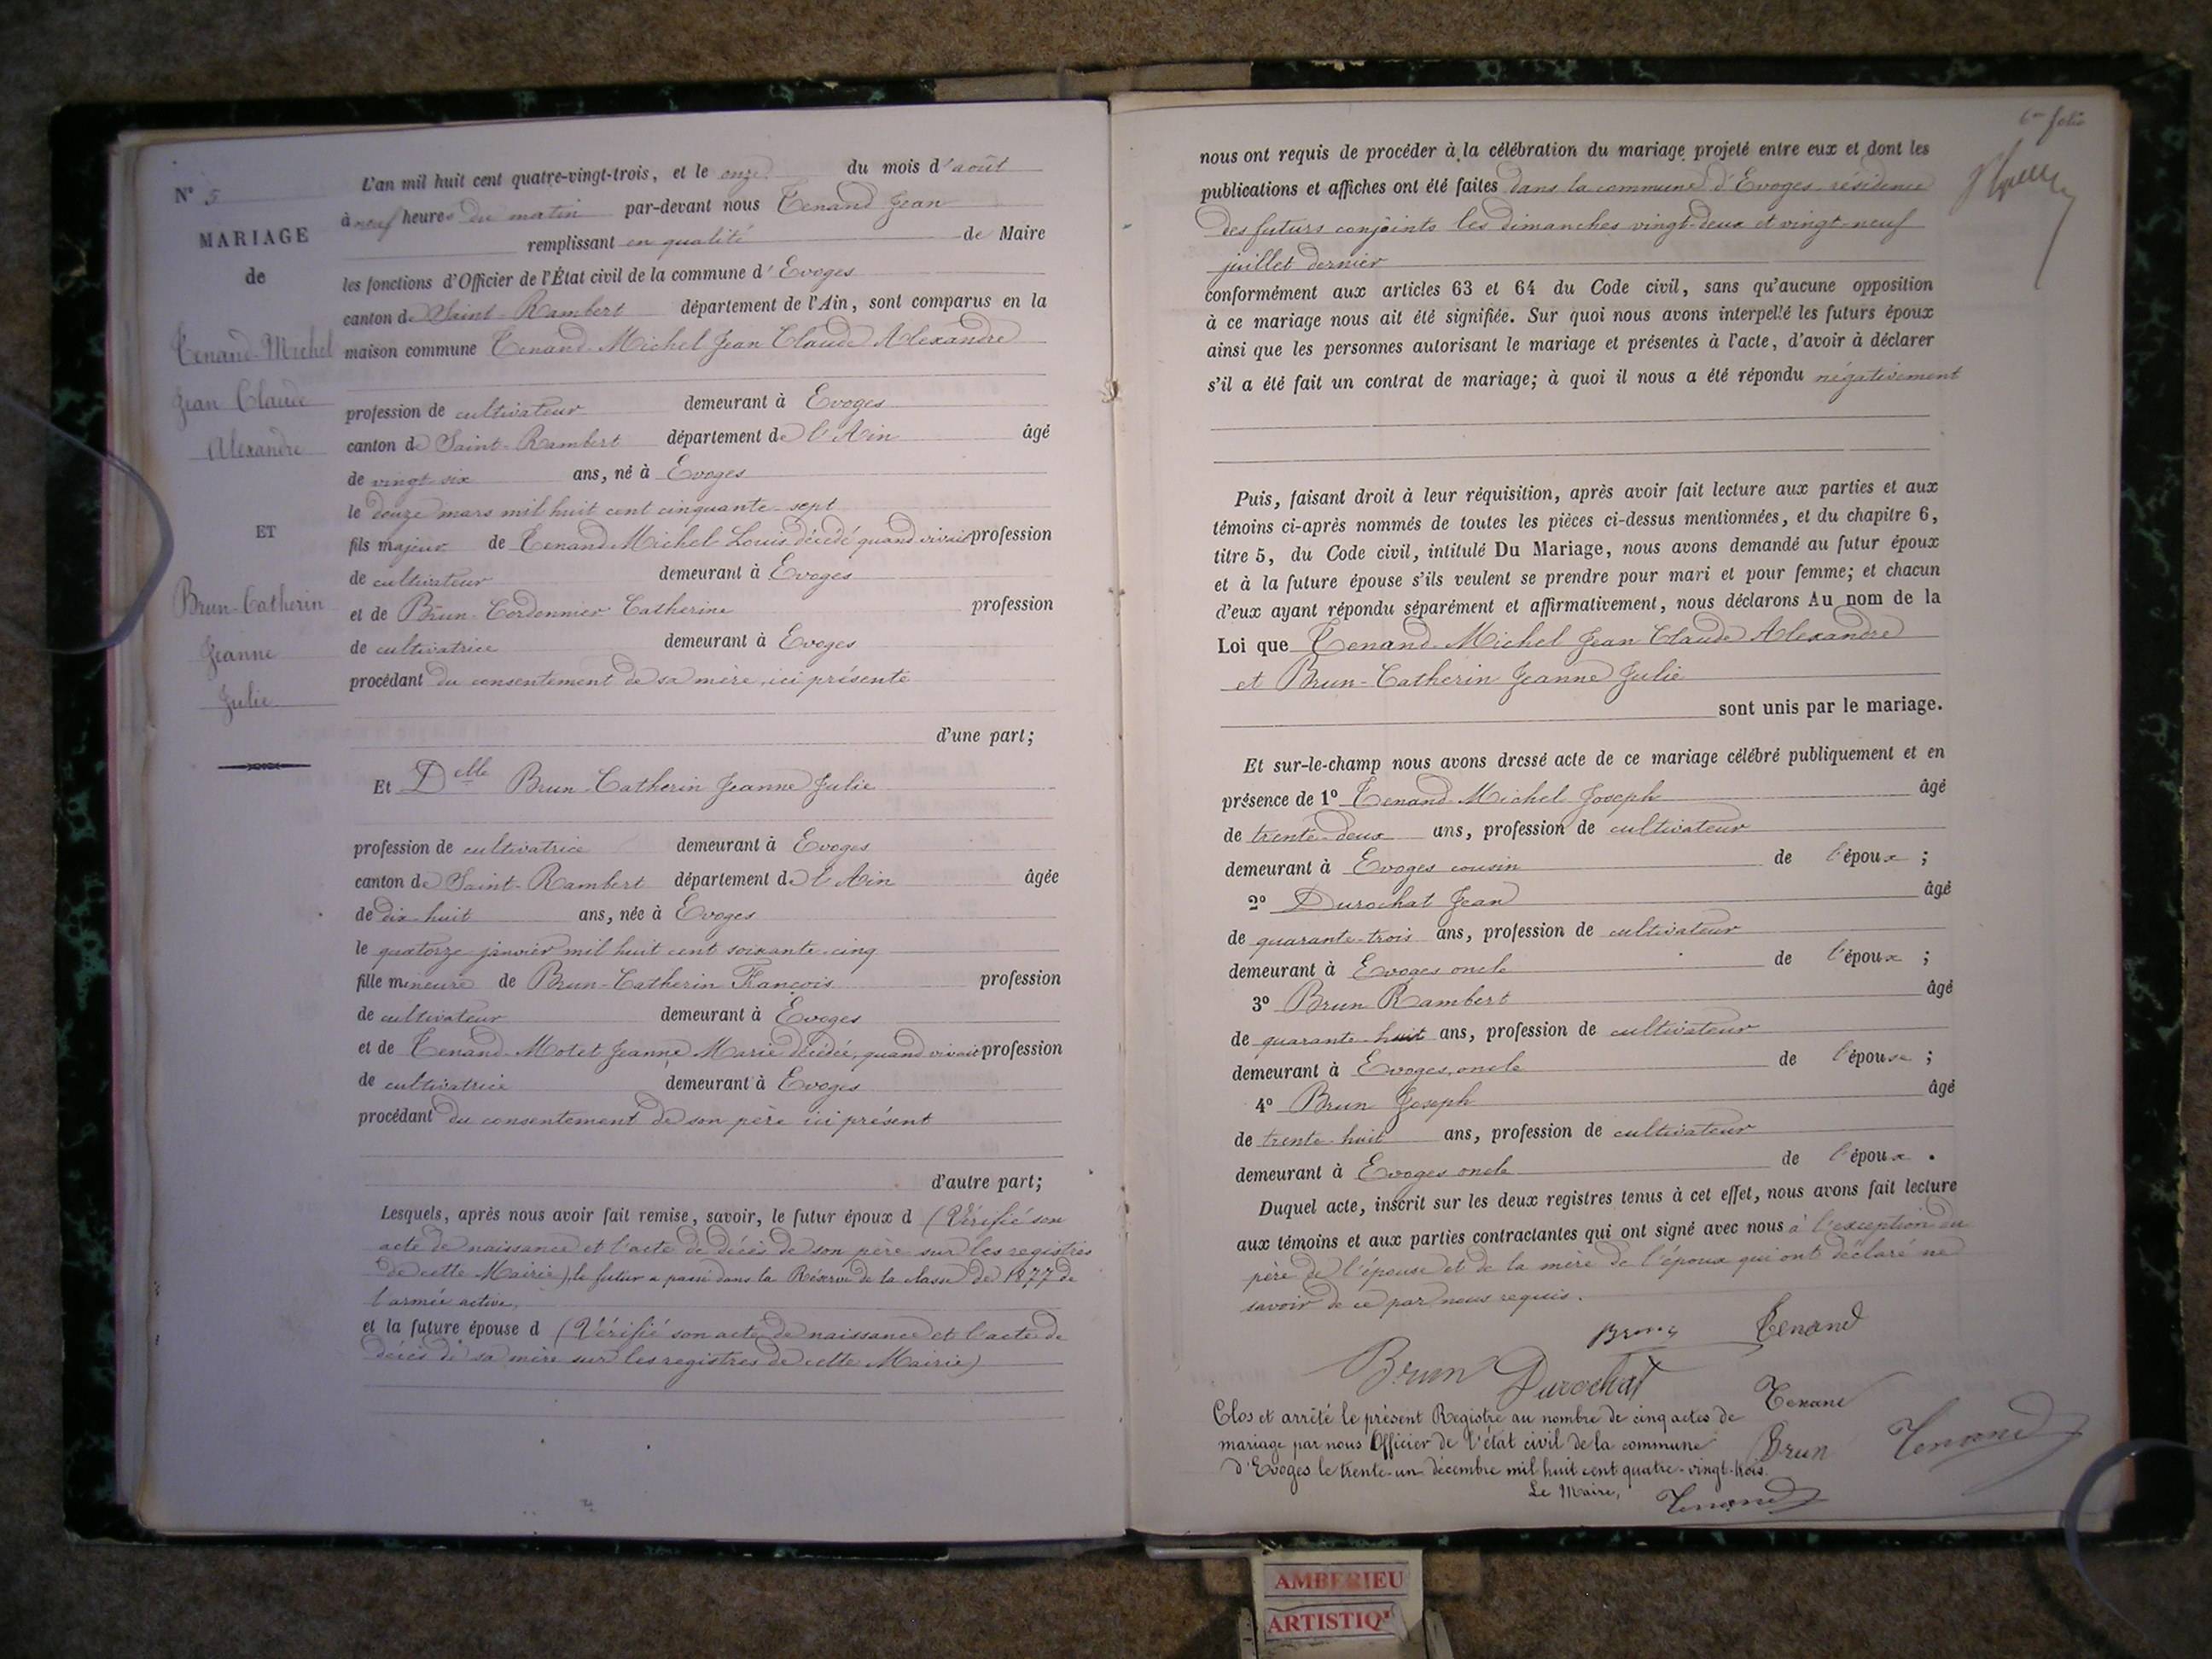 N° 5
MARIAGE
de
Tenand-Michel
Jean Claude
Alexandre
ET
Brun-Catherin
Jeanne
Julie
L'an mil huit cent quatre-vingt-trois, et le onze du mois d'août
à neuf heures du matin par-devant nous Tenand Jean
remplissant en qualité de Maire
les fonctions d'Officier de l'État civil de la commune d'Evoges
canton de Saint-Rambert département de l'Ain, sont comparus en la
maison commune Tenand-Michel Jean Claude Alexandre
profession de cultivateur demeurant à Evoges
canton de Saint-Rambert département de l'Ain âgé
de vingt six ans, né à Evoges
le douze mars mil huit cent cinquante-sept
fils majeur de Tenand-Michel Louis décédé quand vivait profession
de cultivateur demeurant à Evoges
et de Brun-Cordonnier Catherine profession
de cultivatrice demeurant à Evoges
procédant du consentement de sa mère, ici présente
d'une part;
Et Delle Brun-Catherin Jeanne Julie
profession de cultivatrice demeurant à Evoges
canton de Saint-Rambert département de l'Ain âgée
de dix-huit ans, née à Evoges
le quatorze janvier mil huit cent soixante-cinq
fille mineure de Brun-Catherin François profession
de cultivateur demeurant à Evoges
et de Tenand-Motet Jeanne Marie décédée, quand vivait profession
de cultivatrice demeurant à Evoges
procédant du consentement de son père ici présent
d'autre part;
Lesquels, après nous avoir fait remise, savoir, le futur époux d (Vérifié son
acte de naissance et l'acte de décès de son père sur les registres
de cette Mairie), le futur a passé dans la Réserve de la classe de 1877 de
l'armée active.
et la future épouse d (Vérifié son acte de naissance et l'acte de
décès de sa mère sur les registres de cette Mairie)
6me folio
nous ont requis de procéder à la célébration du mariage projeté entre eux et dont les
publications et affiches ont été faites dans la commune d'Evoges, résidence
des futurs conjoints les dimanches vingt-deux et vingt-neuf
juillet dernier
conformément aux articles 63 et 64 du Code civil, sans qu'aucune opposition
à ce mariage nous ait été signifiée. Sur quoi nous avons interpellé les futurs époux
ainsi que les personnes autorisant le mariage et présentes à l'acte, d'avoir à déclarer
s'il a été fait un contrat de mariage; à quoi il nous a été répondu négativement
Puis, faisant droit à leur réquisition, après avoir fait lecture aux parties et aux
témoins ci-après nommés de toutes les pièces ci-dessus mentionnées, et du chapitre 6,
titre 5, du Code civil, intitulé Du Mariage, nous avons demandé au futur époux
et à la future épouse s'ils veulent se prendre pour mari et pour femme; et chacun
d'eux ayant répondu séparément et affirmativement, nous déclarons Au nom de la
Loi que Tenand-Michel Jean Claude Alexandre
et Brun-Catherin Jeanne Julie
sont unis par le mariage.
Et sur-le-champ nous avons dressé acte de ce mariage célébré publiquement et en
présence de 1° Tenand-Michel Joseph âgé
de trente-deux ans, profession de cultivateur
demeurant à Evoges cousin de l'époux ;
2° Durochat Jean âgé
de quarante-trois ans, profession de cultivateur
demeurant à Evoges oncle de l'époux ;
3° Brun Rambert âgé
de quarante-huit ans, profession de cultivateur
demeurant à Evoges, oncle de l'épouse ;
4° Brun Joseph âgé
de trente-huit ans, profession de cultivateur
demeurant à Evoges oncle de l'époux .
Duquel acte, inscrit sur les deux registres tenus à cet effet, nous avons fait lecture
aux témoins et aux parties contractantes qui ont signé avec nous à l'exception du
père de l'épouse et de la mère de l'époux qui ont déclaré ne
savoir de ce par nous requis.
Brun Tenand
Brun Durochat
Tenand
Clos et arrêté le présent Registre au nombre de cinq actes de
mariage par nous Officier de l'état civil de la commune
Brun Tenand
d'Evoges le trente-un décembre mil huit cent quatre-vingt-trois.
Le Maire,
Tenand
AMBERIEU
ARTISTIQ